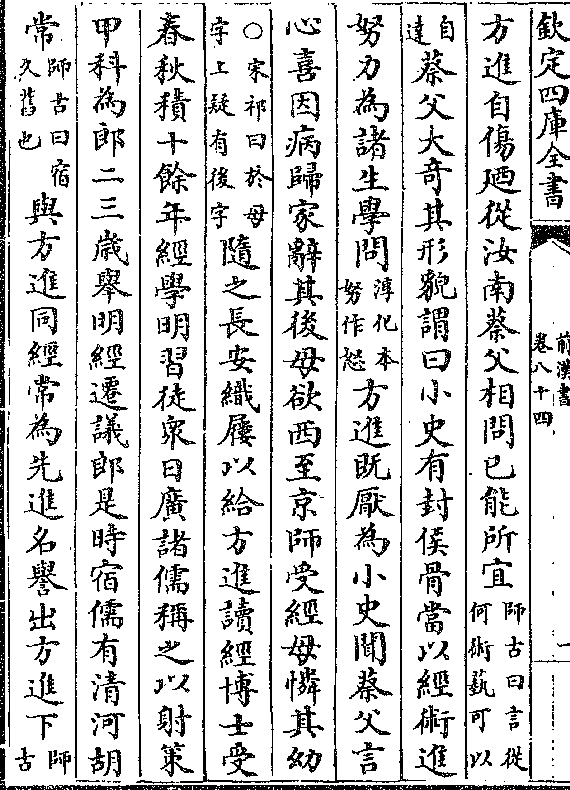 欽定四庫全書
前漢書
卷八十四
一
方進自傷廼從汝南蔡父相問已能所宜師古曰言從何術藝可以
自達蔡父大奇其形貌謂曰小史有封侯骨當以經術進
努力為諸生學問淳化本努作怒方進既厭為小史聞蔡父言
心喜因病歸家辭其後母欲西至京師受經母憐其幼
○宋祁曰於母字上疑有後字隨之長安織屨以給方進讀經博士受
春秋積十餘年經學明習徒衆日廣諸儒稱之以射策
甲科為郎二三歳舉明經遷議郎是時宿儒有清河胡
常師古曰宿久舊也與方進同經常為先進名譽出方進下師古